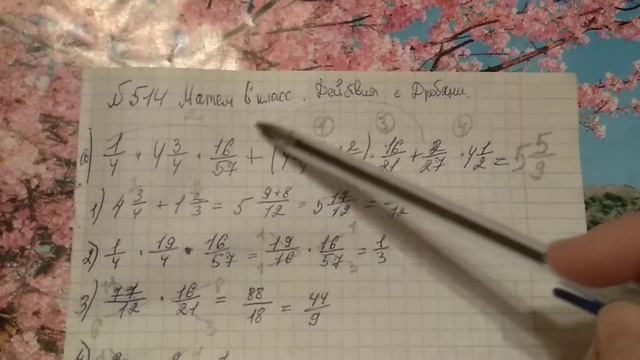 №514 Матем 6 класс. Действия с Дробями.
① ③ ④
а) 1/4 · 4 3/4 · 16/57 + ( 2/ ) · 16/21 + 2/27 · 4 1/2 = 5 5/9
1) 4 3/4 + 1 2/3 = 5 9+8/12 = 5 17/12 = /12
2) 1/4 · 19/4 · 16/57 = 19/16 · 16/57 = 1/3
3) 77/12 · 16/21 = 88/18 = 44/9